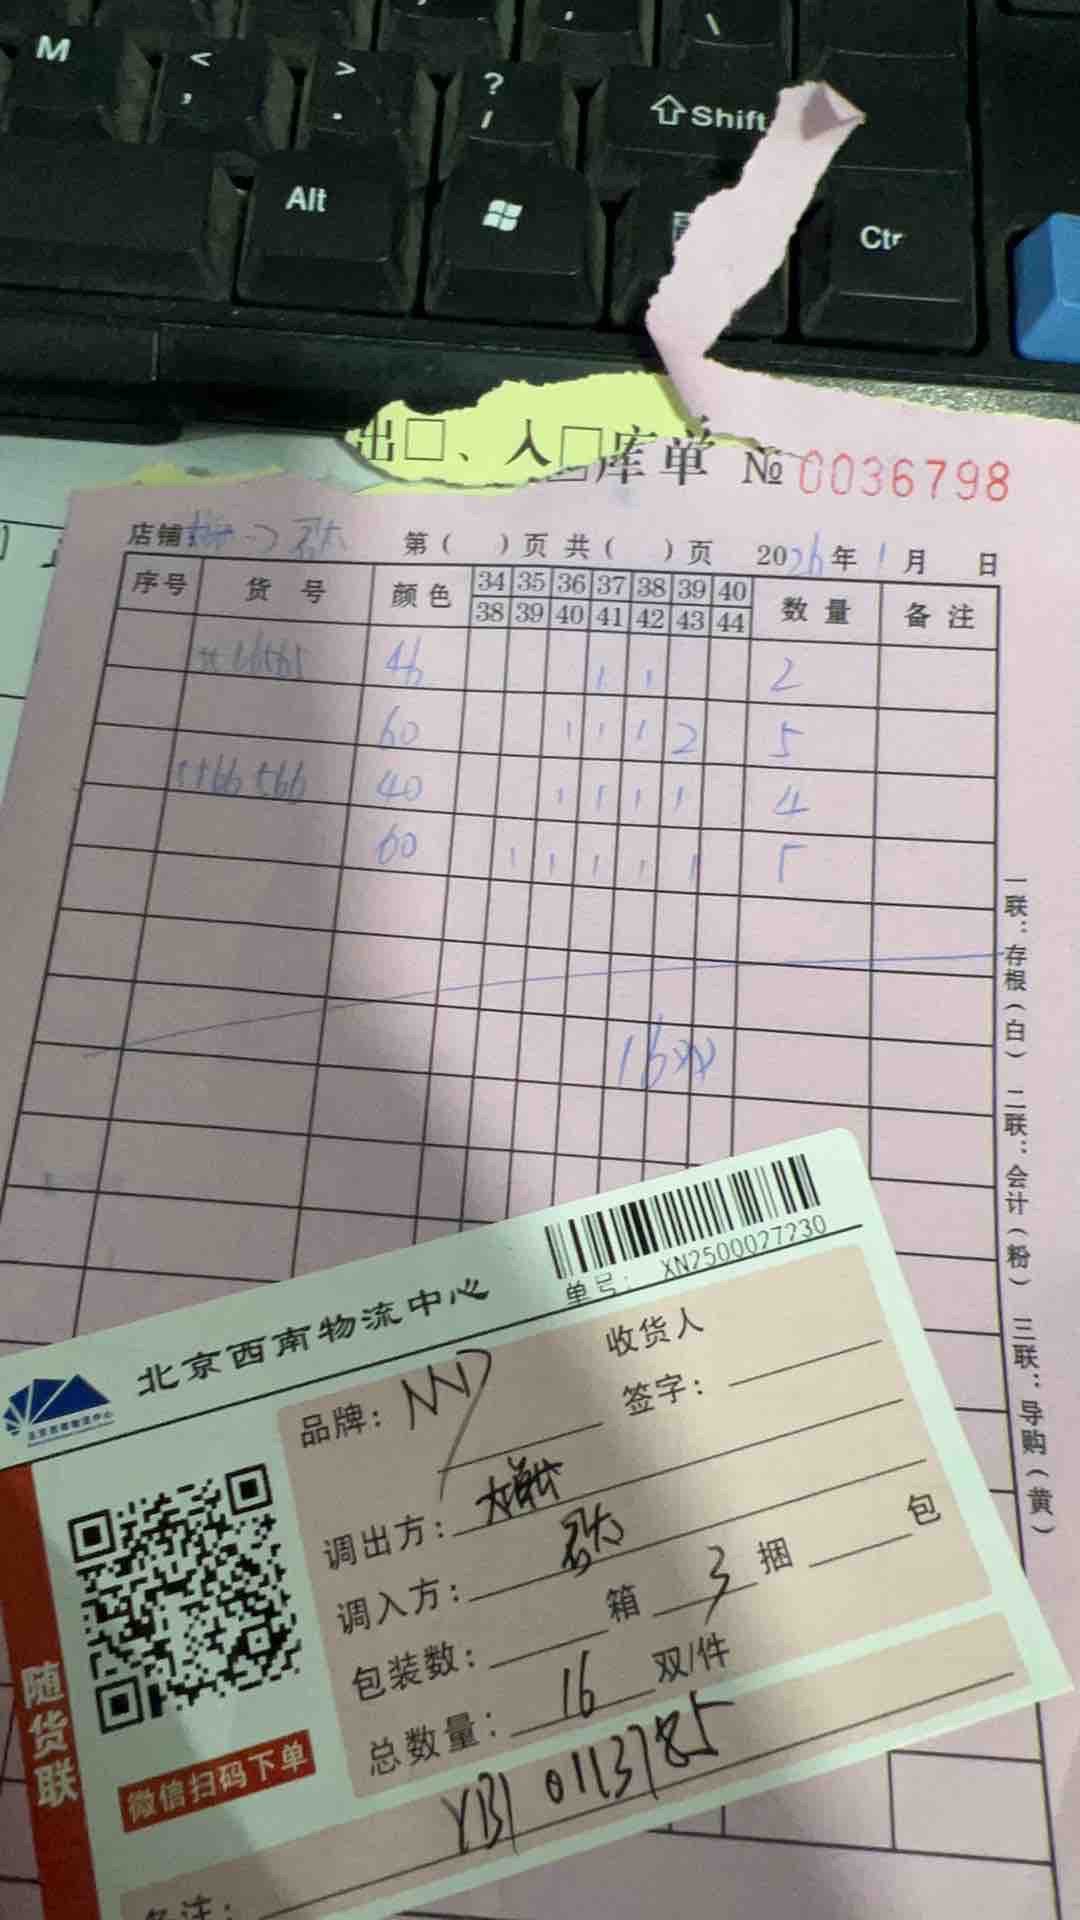 M < , > . ? / \ ⇧Shift
Alt Ctr
出□、入□库单 № 0036798
店铺 第( )页 共( )页 2026年1月 日
序号 货号 颜色 34 35 36 37 38 39 40 数量 备注
38 39 40 41 42 43 44
46 1 1 2
60 1 1 1 2 5
40 1 1 1 1 4
60 1 1 1 1 1 5
16双
一联:存根(白) 二联:会计(粉) 三联:导购(黄)
单号: XN2500027230
北京西南物流中心
北京西南物流中心
品牌: 收货人
签字:
调出方:
调入方:
包装数: 箱 3 捆 包
总数量: 16 双/件
YB1 0113785
备注:
随货联
微信扫码下单